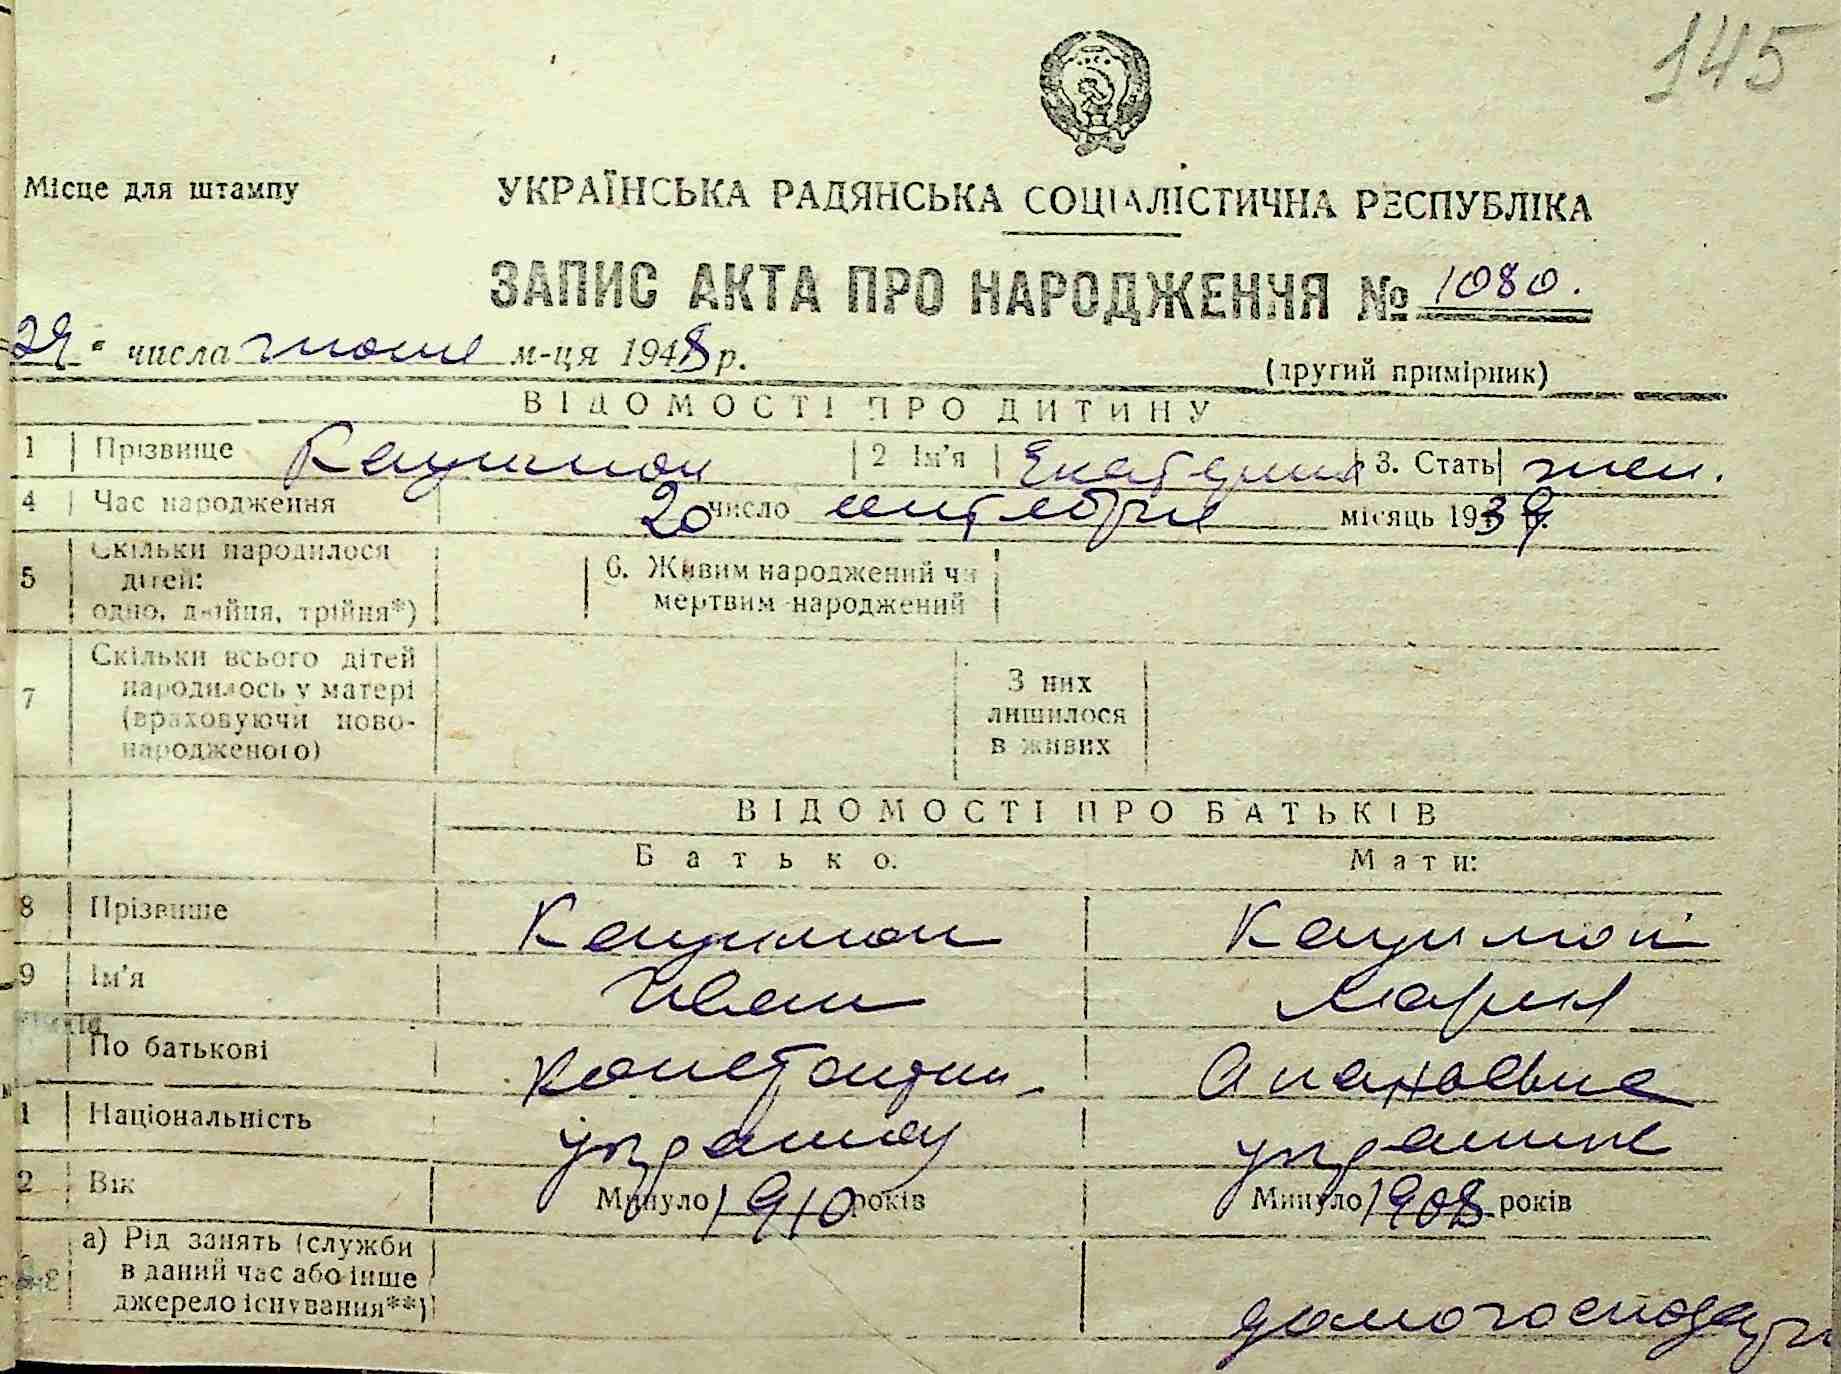 145
Місце для штампу
УКРАЇНСЬКА РАДЯНСЬКА СОЦІАЛІСТИЧНА РЕСПУБЛІКА
ЗАПИС АКТА ПРО НАРОДЖЕННЯ № 1080.
29 числа июня м-ця 1948 р.
(другий примірник)
ВІДОМОСТІ ПРО ДИТИНУ
1 Прізвище 2 Ім'я Екатерина 3. Стать жен.
4 Час народження 20 число сентября місяць 1939 р.
5 Скільки народилося дітей: одно, двійня, трійня*) 6. Живим народжений чи мертвим народжений
7 Скільки всього дітей народилось у матері (враховуючи новонародженого) З них лишилося в живих
ВІДОМОСТІ ПРО БАТЬКІВ
Батько: Мати:
8 Прізвище
9 Ім'я Иван Мария
По батькові Константин. Афанасьевна
1 Національність украинец украинка
2 Вік Минуло 1910 років Минуло 1908 років
а) Рід занять (служби в даний час або інше джерело існування**)
домогосподарка